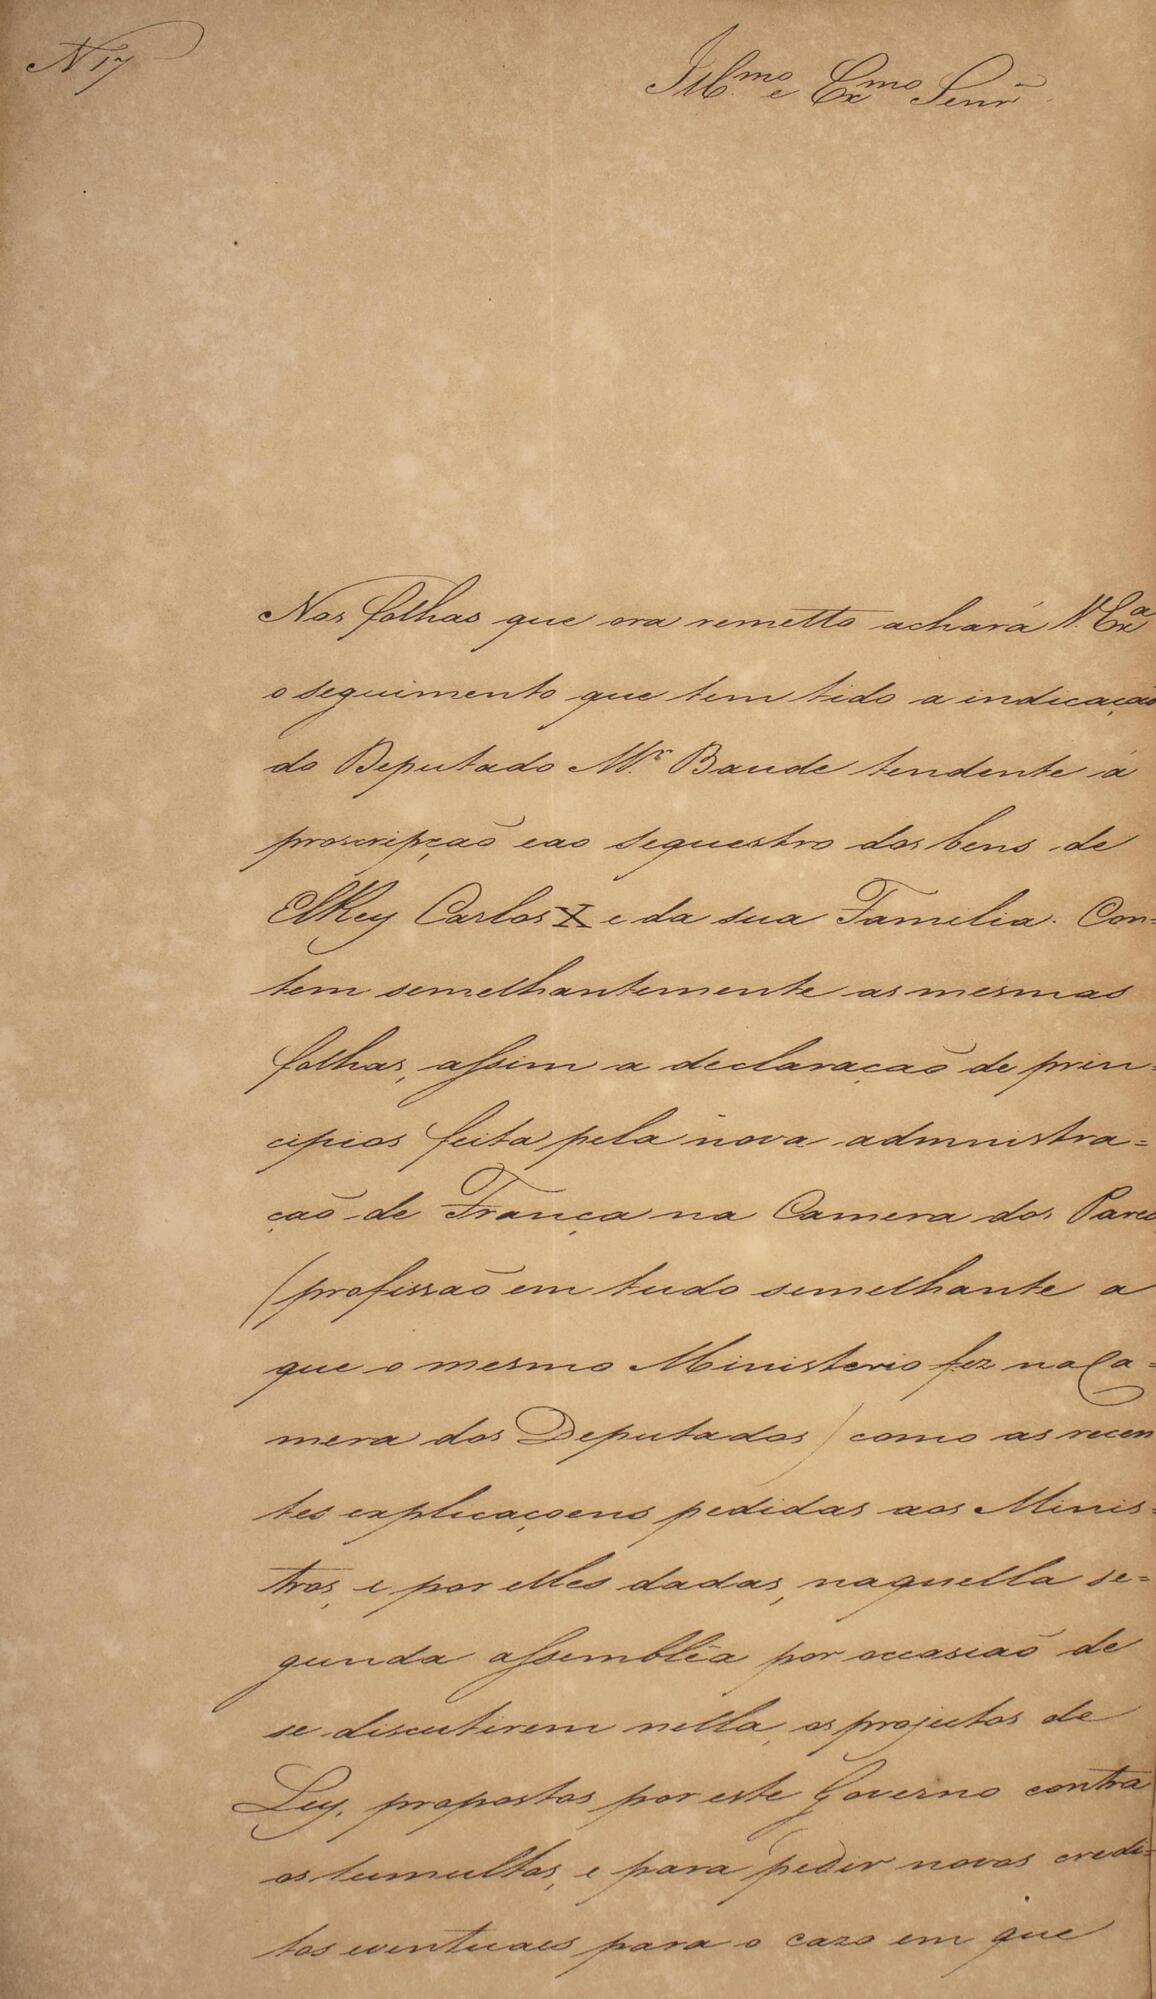 N 17
Illmo e Exmo Senr
Nas folhas que ora remetto achará V. Exa
o seguimento que tem tido a indicação
do Deputado Mr. Baude tendente á
proscripção e ao sequestro dos bens de
ElRey Carlos X e da sua Familia. Con=
tem semelhantemente as mesmas
folhas, assim a declaração de prin=
cipios feita pela nova admnistra=
ção de França na Camera dos Pares
(profissão em tudo semelhante a
que o mesmo Ministerio fez na Ca=
mera dos Deputados) como as recen
tes explicaçoens pedidas aos Minis=
tros, e por elles dadas, naquella se=
gunda assemblêa por occasião de
se discutirem nella, os projectos de
Ley, propostos por este Governo contra
os tumultos, e para pedir novos credi=
tos eventuaes para o cazo em que